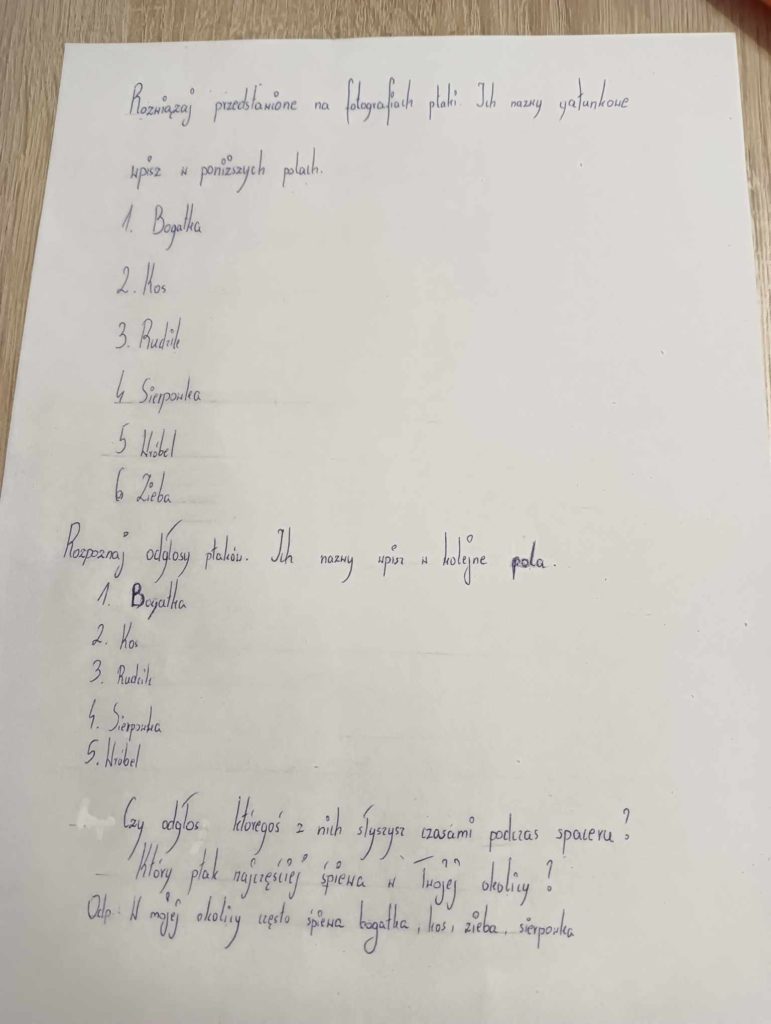 Rozwiązaj przedstawione na fotografiach ptaki. Ich nazwy gatunkowe
wpisz w poniższych polach.
1. Bogatka
2. Kos
3. Rudzik
4 Sierpowka
5 Wróbel
6 Zieba
Rozpoznaj odgłosy ptaków. Ich nazwy wpisz w kolejne pola.
1. Bogatka
2. Kos
3. Rudzik
4. Sierpowka
5. Wróbel
Czy odgłos któregoś z nich słyszysz czasami podczas spaceru?
Który ptak najczęściej śpiewa w Twojej okolicy?
Odp: W mojej okolicy często śpiewa bogatka, kos, zieba, sierpowka